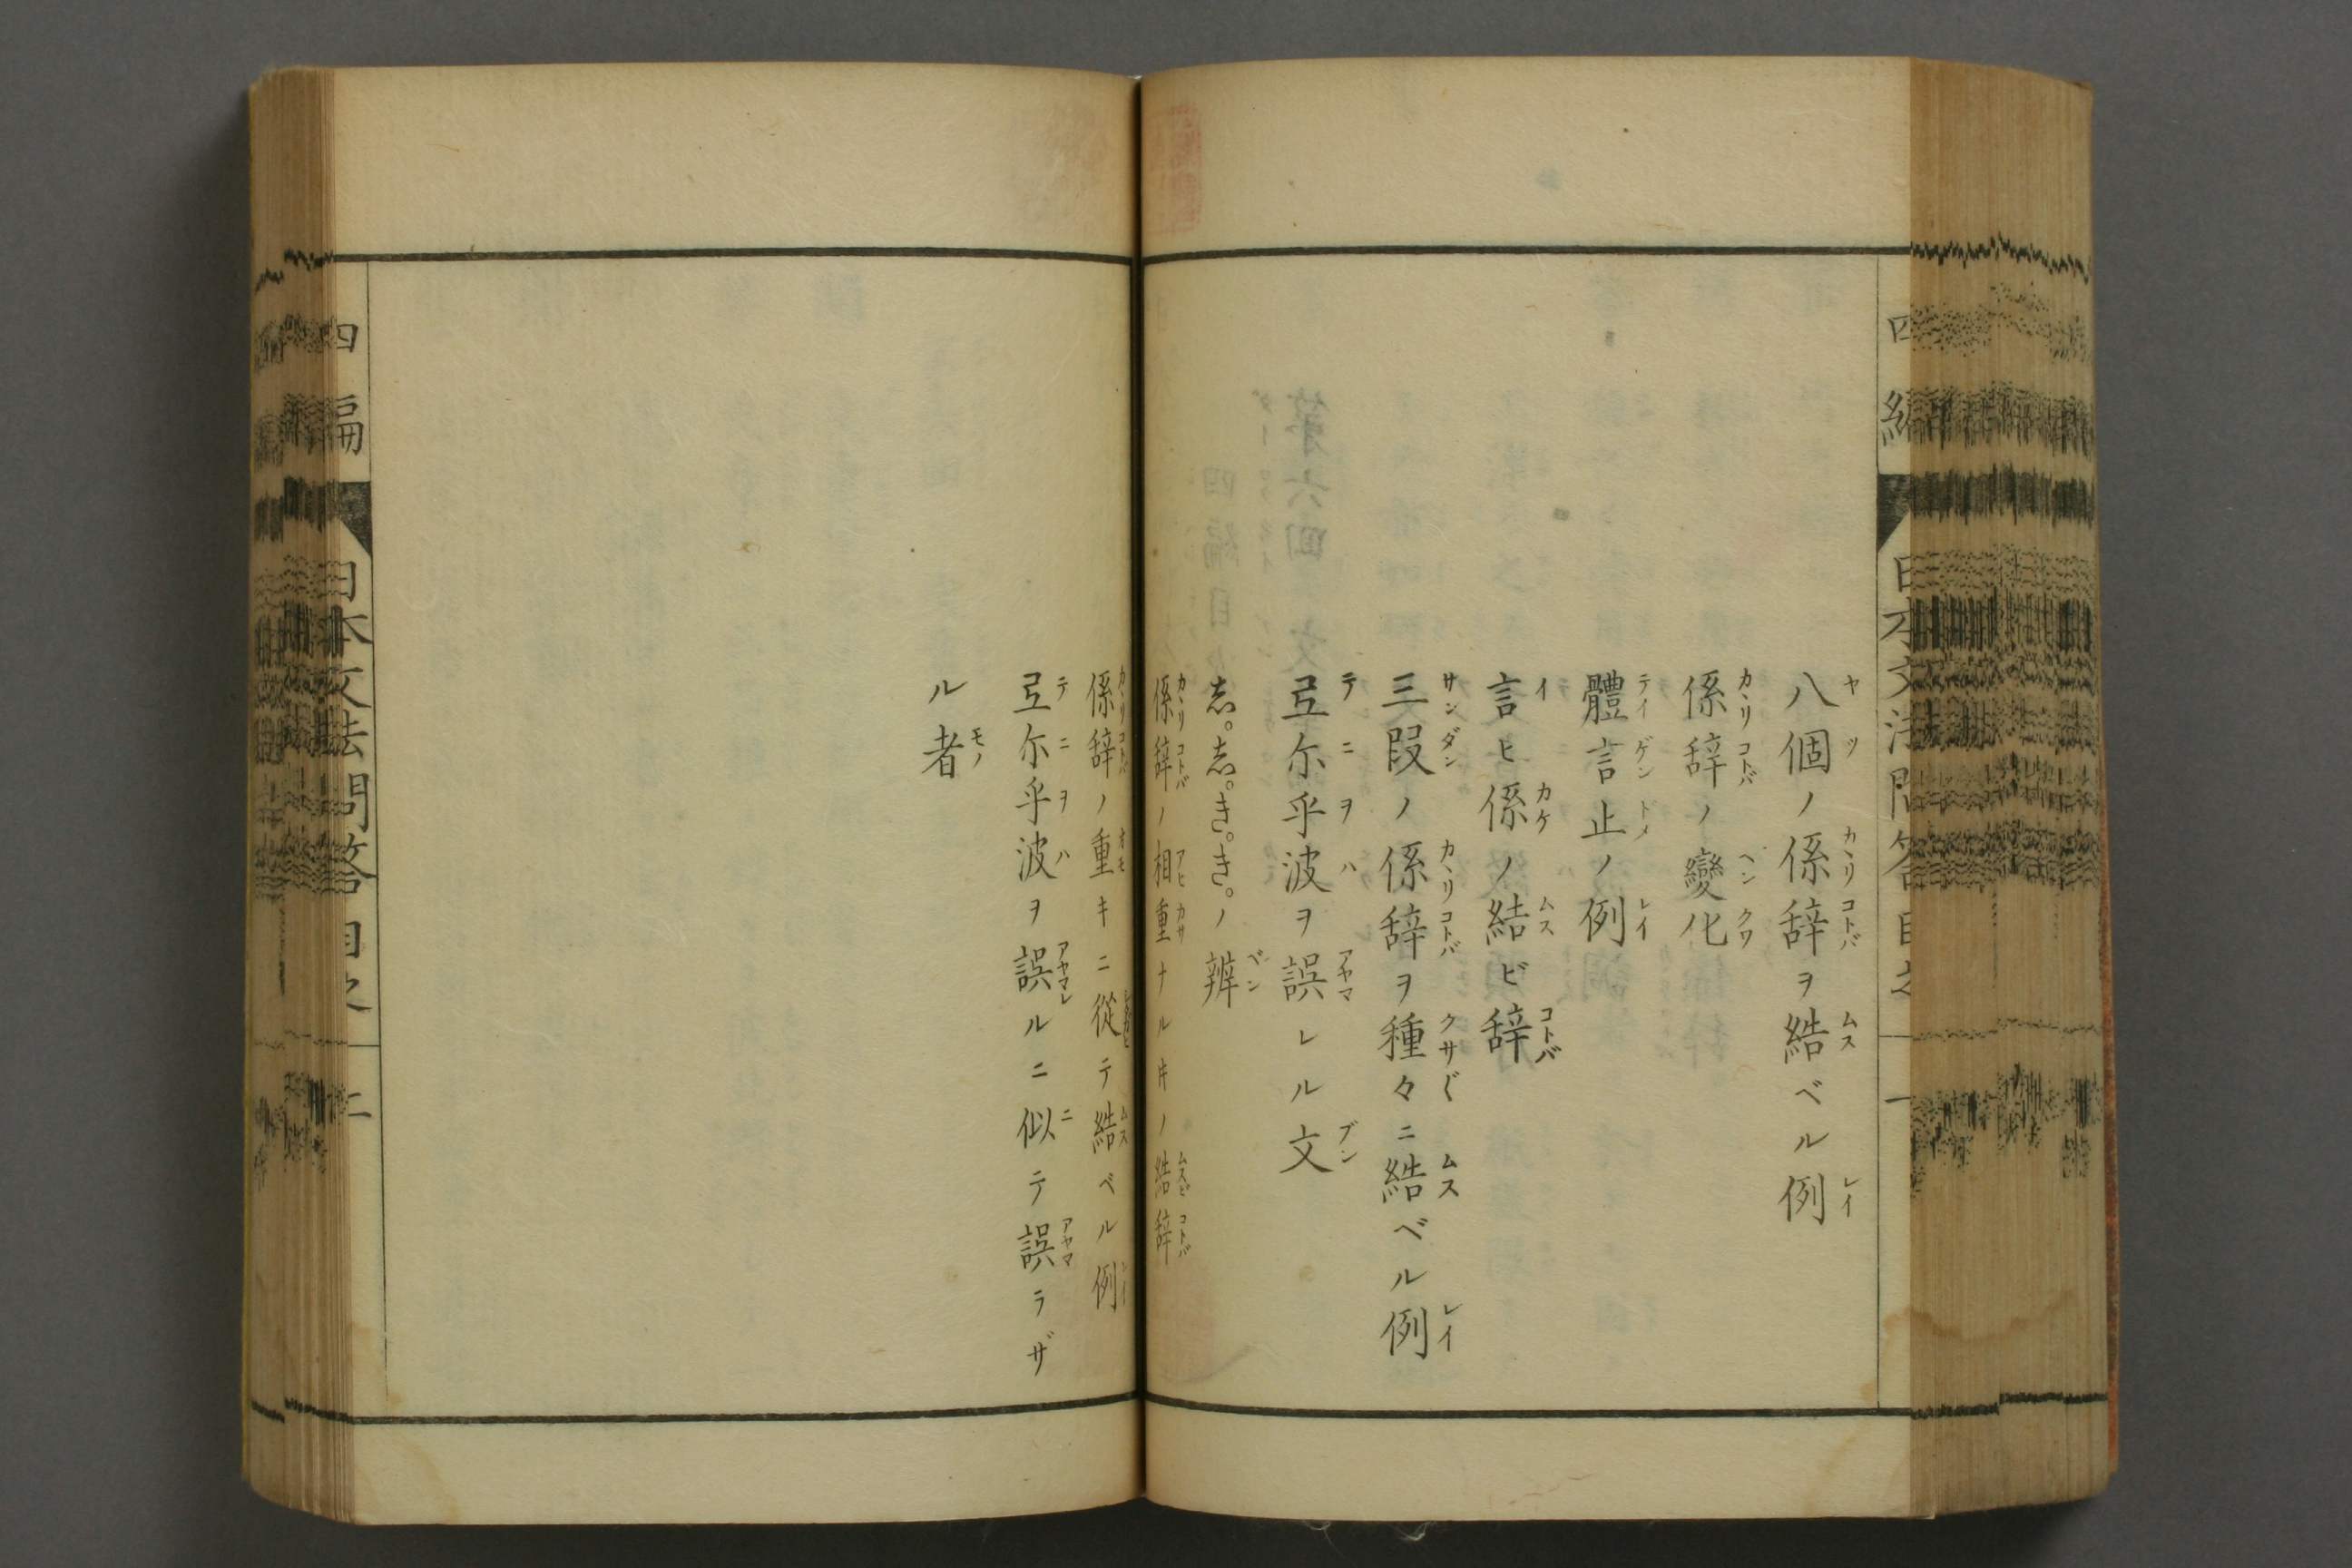 八個ノ係辞ヲ結ベル例
係辞ノ變化
體言止ノ例
言ヒ係ノ結ビ辞
三段ノ係辞ヲ種々ニ結ベル例
弖尓乎波ヲ誤レル文
志。志。き。き。ノ辨
係辞ノ相重ナル𪜈ノ結辞
係辞ノ重キニ從テ結ベル例
弖尓乎波ヲ誤ルニ似テ誤ラザ
ル者
四編
日本文法問答目次
二